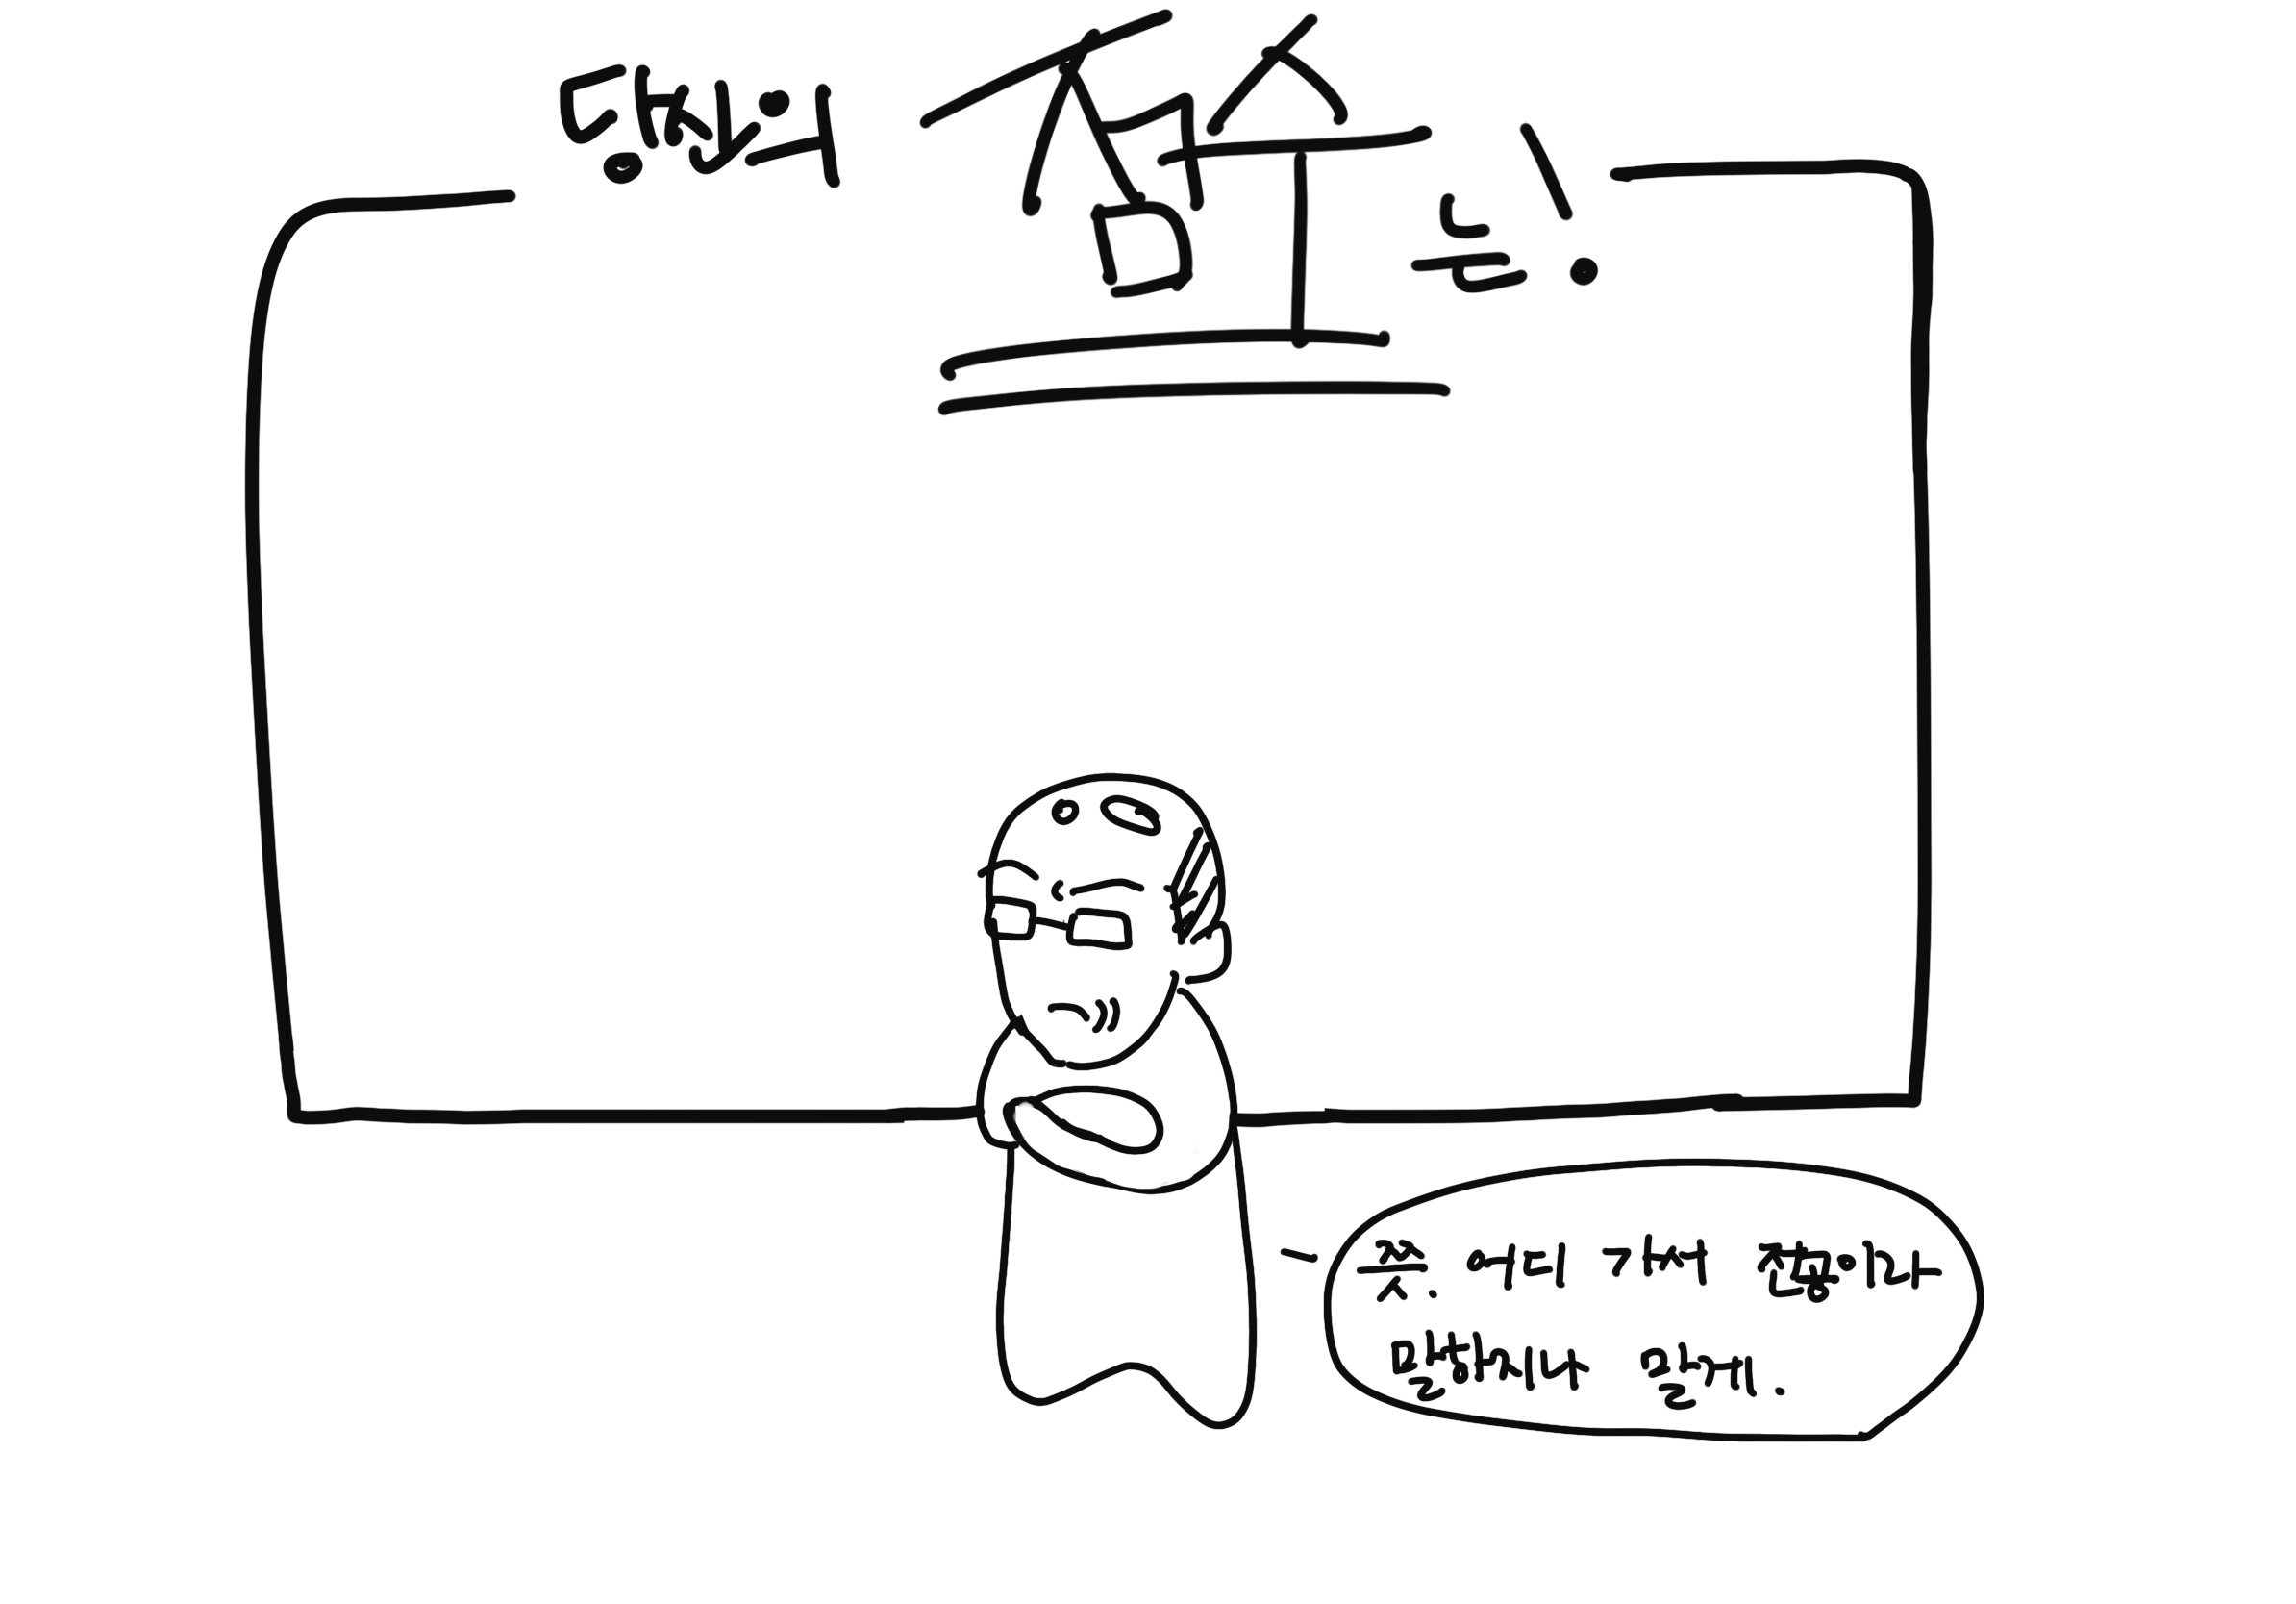 당신의 점수는!
- 쯧. 어디 가서 전공이라
말하지나 말게.